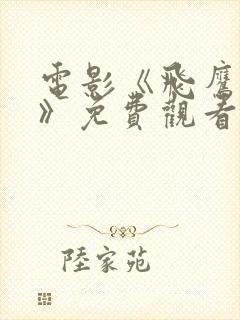 電影《飛鷹
》免費觀看
陸家苑